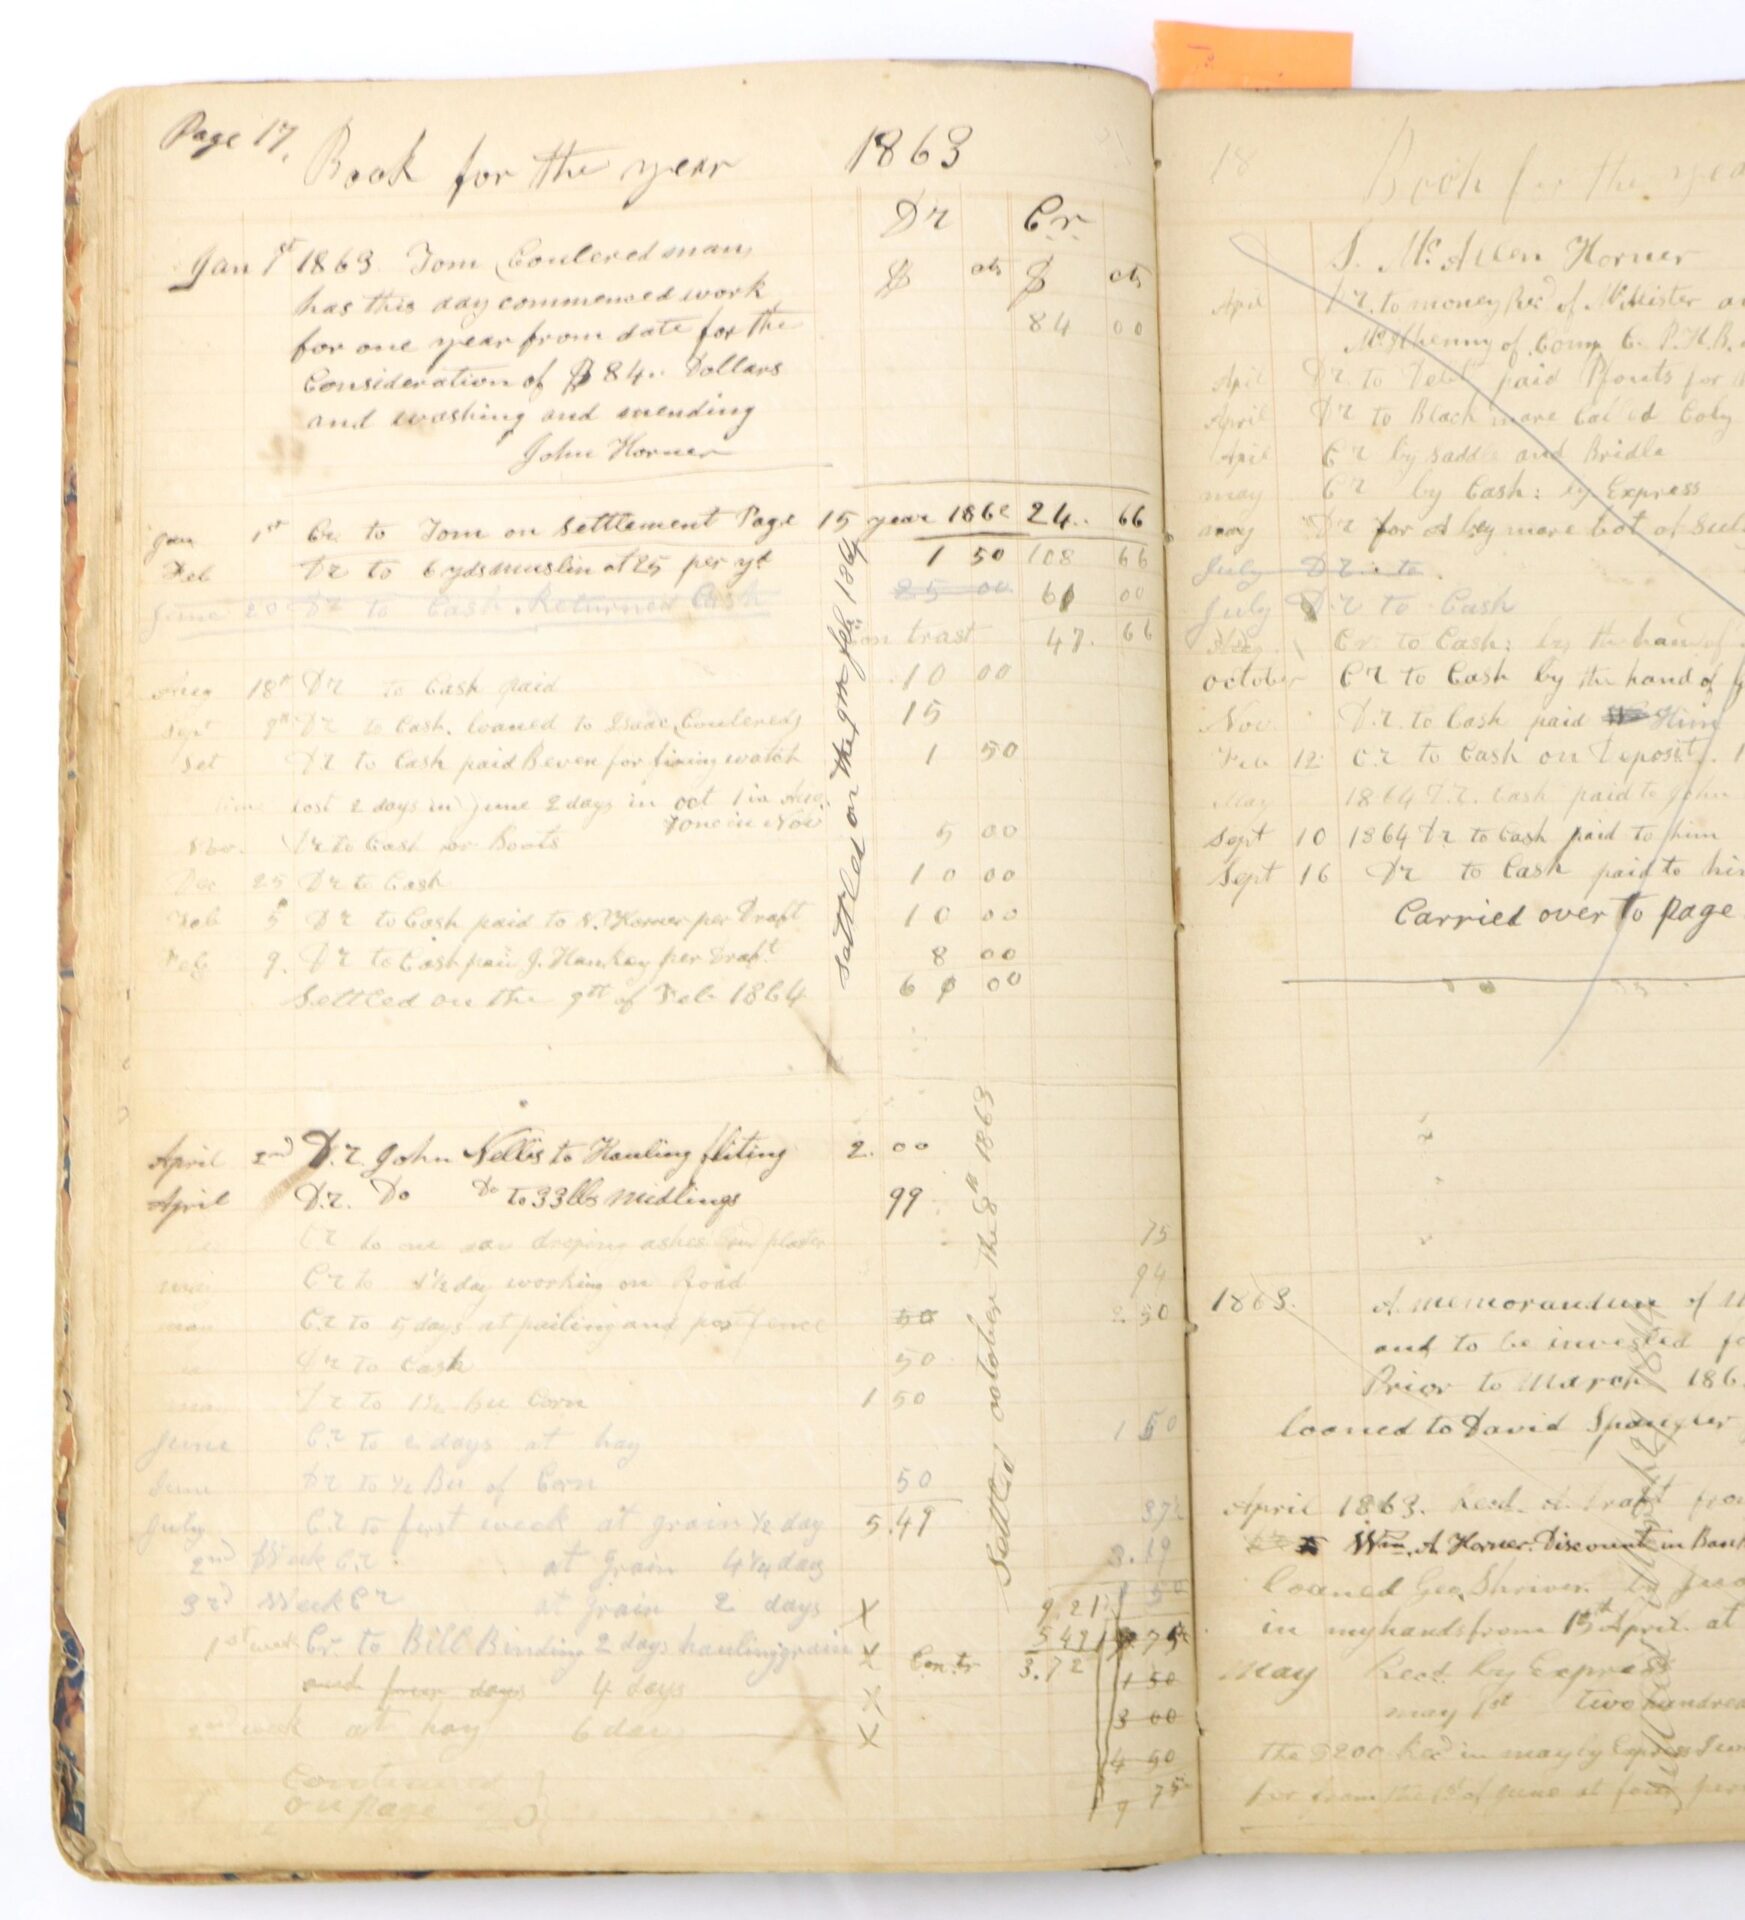 Page 17.
Book for the year 1863
Dr Cr
$ cts $ cts
Jan 1st 1863 Tom Coulered man
has this day commenced work
84 00
for one year from date for the
Consideration of $84.. Dollars
and washing and mending
John Horner
Jan 1st Cr to Tom on Settlement Page 15 year 1862 24.. 66
Feb Dr to 6 yds muslin at 25 per yd 1 50 108 66
June 20 Dr to Cash. Returned Cash 25 00 61 00
Contrast 47. 66
Aug 18th Dr to Cash paid 10 00
Sept 9th Dr to Cash. loaned to Isaac Coulered 15
Set Dr to Cash paid Beven for fixing watch 1 50
time lost 2 days in June 2 days in oct 1 in Aug.
& one in Nov
Nov. Dr to Cash for Boots 5 00
Dec 25 Dr to Cash 10 00
Feb 5 Dr to Cash paid to N. Horner per Draft 10 00
Feb 9. Dr to Cash paid J. Hankey per Draft 8 00
Settled on the 9th of Feb 1864 61 00
Settled on the 9th Feb 1864
April 2nd D.r. John Nellis to Hauling fliting 2. 00
April D.r. Do Do to 33 lbs midlings 99
Cr to one day droping ashes and plaster 75
may Cr to 1½ day working on Road 94
may C.r to 5 days at pailing and pos fence 50 2.50
Dr to Cash 50
may Dr to 1½ bu Corn 1 50
June C.r to 2 days at hay 1 50
June Dr to ½ Bu of Corn 50
July C.r to first week at grain ½ day 5.49 37½
2nd Week C.r at grain 4¼ day 3.19
3rd Week Cr at grain 2 days X 9.21 1 50
1st week Cr. to Bill Binding 2 days hauling grain X 5 49
Contr 3.72
and four days 4 days X 1 50
2nd week at hay 6 days X 3 00
4 50
9 75
continued
on page 20
Settled october the 8th 1863
18 Book for the yea
S. McAllen Horner
April Dr. to money Recd of McAlister
McIlhenny of Comp C. P.H.B.
April Dr. to paid Pfouts for
April Dr to Black mare Called Coby
April Cr by saddle and Bridle
may Cr by Cash: by Express
may Dr for A bey mare bot of
July Dr. to
July Dr to Cash
Cr. to Cash: by the hand of
october Cr to Cash by the hand of
Nov. D.r. to Cash paid Him
Feb 12 C.r to Cash on Deposit.
May 1864 D.r. Cash paid to John
Sept 10 1864 Dr to Cash paid to him
Sept 16 Dr to Cash paid to him
Carried over to page
1863. A memorandum of
and to be invested
Prior to March 186
loaned to David Spangler
April 1863. Recd. A. Draft from
Wm. A Horner. Discount in Bank
loaned Geo. Shriver.
in my hands from 13th April. at
May Recd by Express
may 1st two hundred
the $200 Recd in may by Express
for from the 1st of June at four per